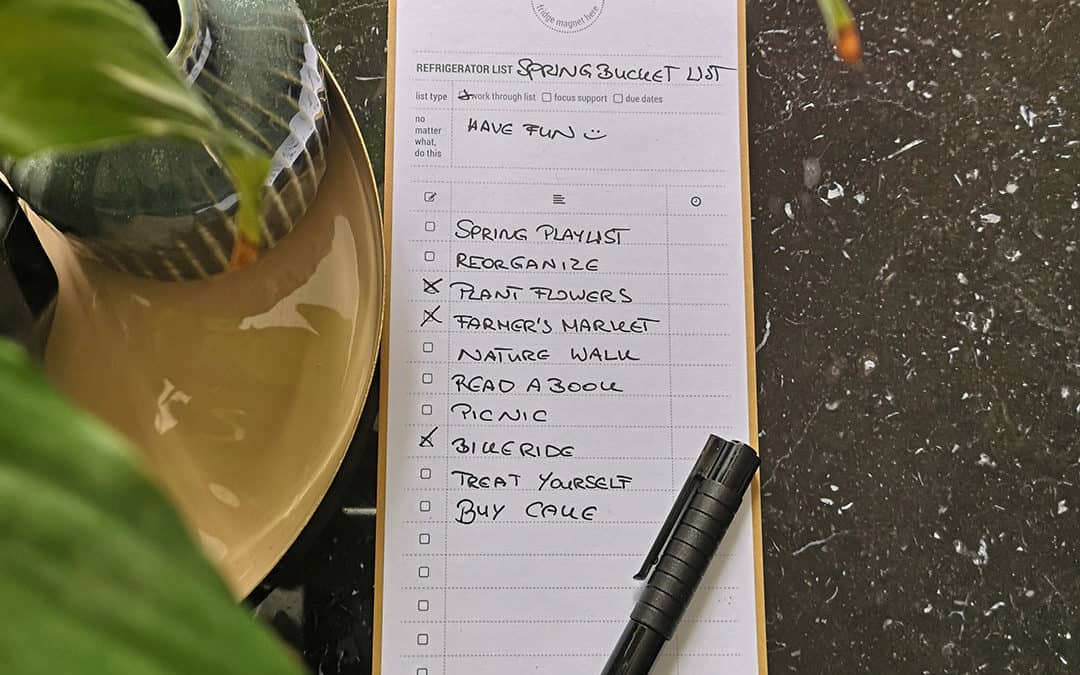 fridge magnet here
REFRIGERATOR LIST SPRING BUCKET LIST
list type work through list focus support due dates
no matter what, do this HAVE FUN
SPRING PLAYLIST
REORGANIZE
PLANT FLOWERS
FARMER'S MARKET
NATURE WALK
READ A BOOK
PICNIC
BIKE RIDE
TREAT YOURSELF
BUY CAKE